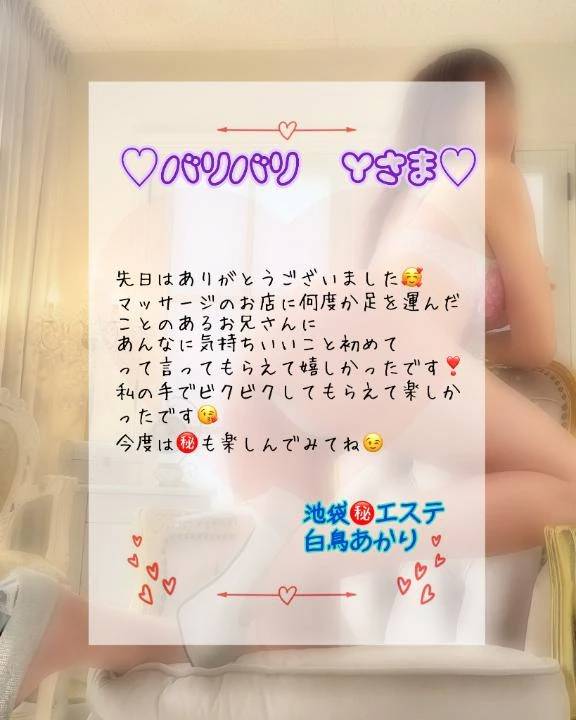 ♡バリバリ Yさま♡
先日はありがとうございました🥰
マッサージのお店に何度か足を運んだ
ことのあるお兄さんに
あんなに気持ちいいこと初めて
って言ってもらえて嬉しかったです❣️
私の手でビクビクしてもらえて楽しか
ったです😘
今度は㊙️も楽しんでみてね😉
池袋㊙️エステ
白鳥あかり